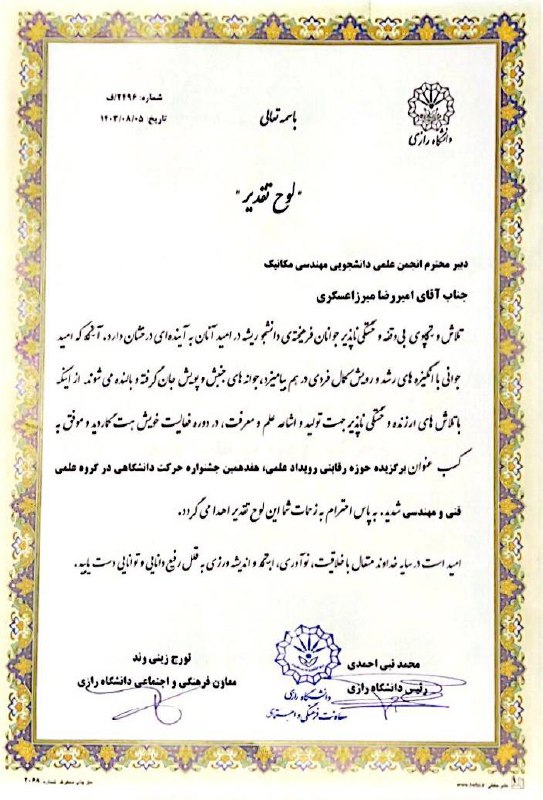 شماره: ۲۴۹۶/ف
تاریخ: ۱۴۰۳/۰۸/۰۵
باسمه تعالی
دانشگاه رازی
"لوح تقدیر"
دبیر محترم انجمن علمی دانشجویی مهندسی مکانیک
جناب آقای امیررضا میرزاعسگری
تلاش و تکاپوی بی وقفه و خستگی ناپذیر جوانان فرهیخته‌ی دانشجو ریشه در امید آنان به آینده‌ای درخشان دارد، آنجا که امید
جوانی با انگیزه های رشد و رویش کمال فردی در هم بیامیزد، جوانه های جنبش و پویش جان گرفته و بالنده می شوند. از اینکه
با تلاش های ارزنده و خستگی ناپذیر جهت تولید و اشاعه علم و معرفت، در دوره فعالیت خویش همت گماردید و موفق به
کسب عنوان برگزیده حوزه رقابتی رویداد علمی، هفدهمین جشنواره حرکت دانشگاهی در گروه علمی
فنی و مهندسی شدید. به پاس احترام به زحمات شما این لوح تقدیر اهدا می گردد.
امید است در سایه خداوند متعال با خلاقیت، نوآوری، اجتهاد و اندیشه ورزی به قلل رفیع دانایی و توانایی دست یابید.
محمد نبی احمدی
رئیس دانشگاه رازی
تورج زینی وند
معاون فرهنگی و اجتماعی دانشگاه رازی
دانشگاه رازی
معاونت فرهنگی و اجتماعی
حق چاپ محفوظ. شماره ۲۰۶۸